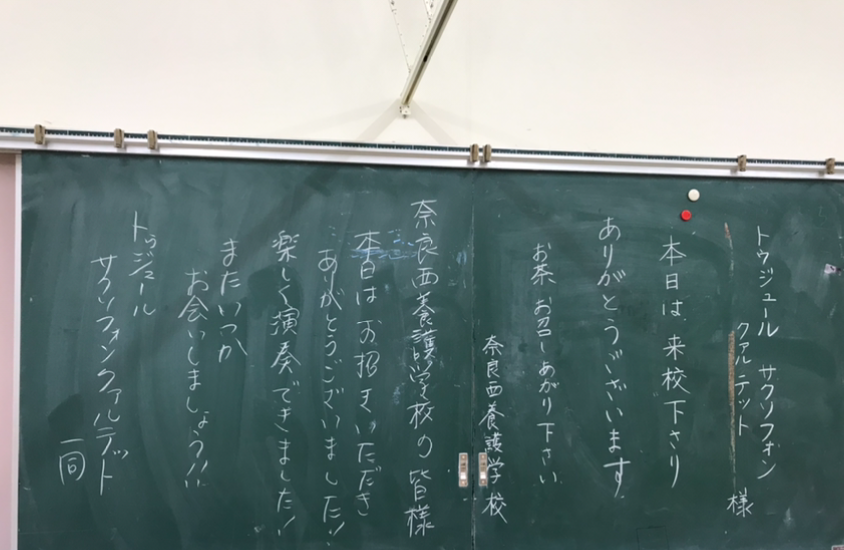 トゥジュール サクソフォン
クァルテット 様
本日は、来校下さり
ありがとうございます。
お茶、お召しあがり下さい。
奈良西養護学校
奈良西養護学校の皆様
本日はお招きいただき
ありがとうございました!
楽しく演奏できました!
またいつか
お会いしましょう!!
トゥジュール
サクソフォンクァルテット
一同